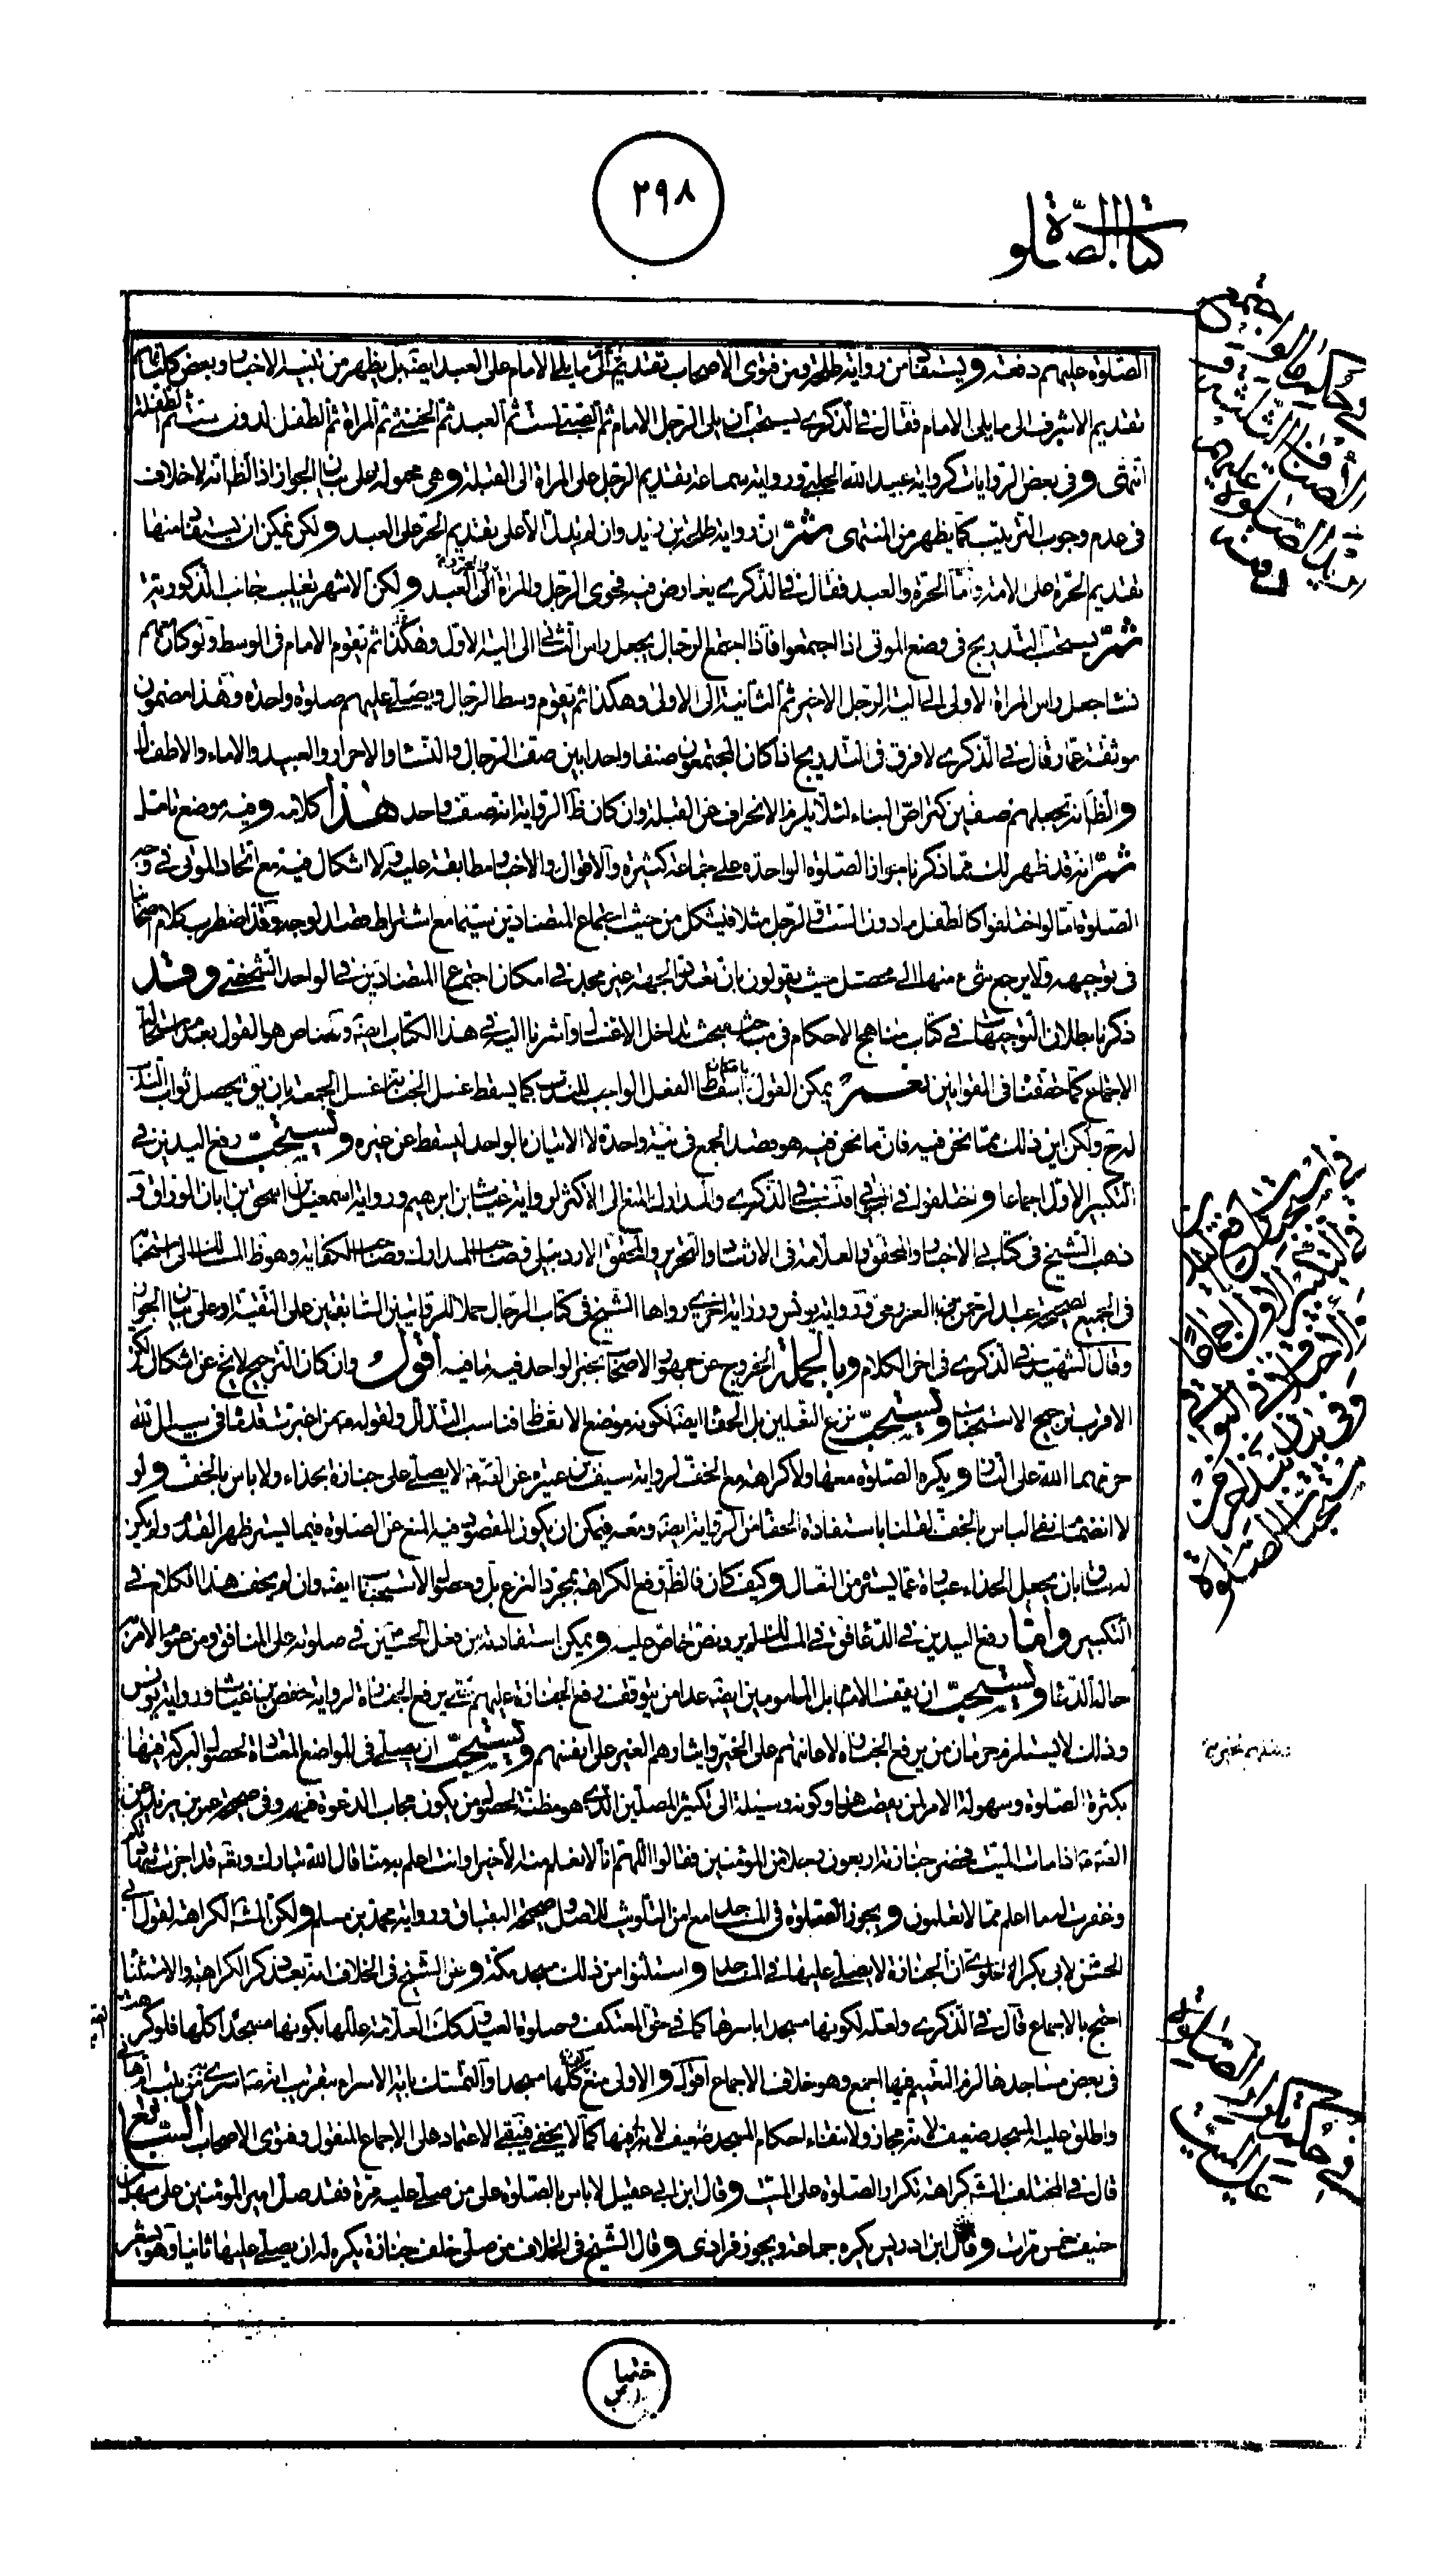 ٣٩٨
كتاب الصلوة
الصلوة عليهم دفعة ويستفاد من رواية طلحة ومن فتوى الاصحاب تقديم الحر الى ما يلى الامام على العبد ايضا بل يظهر من تتبع الاخبار وبعض كلماتهم
تقديم الاشرف الى ما يلى الامام فقال فى الذكرى يستحب ان يلى الرجل الامام ثم الصبى لست ثم العبد ثم الخنثى ثم المراة ثم الطفل لدون ست ثم الطفلة
انتهى وفى بعض الروايات كرواية عبيد الله الحلبى ورواية سماعة تقديم الرجل على المراة الى القبلة وهى محمولة على بيان الجواز اذ الظ انه لا خلاف
فى عدم وجوب الترتيب كما يظهر من المنتهى ثمّ ان رواية طلحة بن زيد وان لم يدل الا على تقديم الحر على العبد ولكن يمكن ان يستفاد منها
تقديم الحرة على الامة واما الحرة والعبد فقال فى الذكرى يعارض فيه فحوى الرجل والمراة والحر والعبد ولكن الاشهر تغليب جانب الذكورية
ثمّ يستحب التدريج فى وضع الموتى اذا اجتمعوا فاذا اجتمع الرجال يجعل راس الثانى الى الية الاول وهكذا ثم يقوم الامام فى الوسط ولو كان معهم
نساء جعل راس المراة الاولى الى الية الرجل الاخير ثم الثانية الى الاولى وهكذا ثم يقوم وسط الرجال ويصلى عليهم صلوة واحدة وهذا مضمون
موثقة عمار وقال فى الذكرى لا فرق فى التدريج اذا كان المجتمعون صنفا واحدا بين صف الرجال والنساء والاحرار والعبيد والاماء والاطفال
والظ انه يجعلهم صفين كتراص البناء لئلا يلزم الانحراف عن القبلة وان كان ظ الرواية انه صف واحد هذا كلامه وفيه موضع تامل
ثمّ انه قد ظهر لك مما ذكرنا جواز الصلوة الواحدة على جماعة كثيرة والاقوال والاخبار مطابقة عليه ولا اشكال فيه مع اتحاد الموتى فى وجه
الصلوة اما لو اختلفوا كالطفل مادون الست والرجل مثلا فيشكل من حيث اجتماع المتضادين سيما مع اشتراط قصد الوجه وقد اضطرب كلام اصحابنا
فى توجيهه ولا يرجع شىء منها الى محصل حيث يقولون بان تعدد الجهة غير مجد فى امكان اجتماع المتضادين فى الواحد الشخصى وقد
ذكرنا بطلان التوجيهات فى كتاب مناهج الاحكام فى مباحث مبحث تداخل الاغسال واشرنا اليه فى هذا الكتاب ايضا هو القول بعدم استحالة
الاجتماع كما حققنا فى القوانين نعم يمكن القول باسقاط الفعل الواجب للندب كما يسقط غسل الجنابة غسل الجمعة بان يق يحصل ثواب الندب
له ح ولكن اين ذلك مما نحن فيه فان ما نحن فيه هو قصد الجمع فى نية واحدة لا الاتيان بالواحد ليسقط عن غيره ويستحب رفع اليدين فى
التكبير الاول اجماعا واختلفوا فى البواقى فنسب فى الذكرى والمدارك المنع الى الاكثر لرواية غياث ابن ابرهيم ورواية اسمعيل بن اسحق بن ابان الوراق و
ذهب الشيخ فى كتابى الاخبار والمحقق والعلامة فى الارشاد والتحرير والمحقق الاردبيلى وصاحب المدارك وصاحب الكفاية وهو ظ المسالك الى استحبابه
فى الجميع لصحيحة عبد الرحمن العزرمى ورواية يونس ورواية اخرى رواها الشيخ فى كتاب الرجال حملا للروايتين السابقتين على التقية او على بيان الجواز
وقال الشهيد فى الذكرى فى اخر الكلام وبالجملة الخروج عن جمهور الاصحاب بخبر الواحد فيه ما فيه اقول وان كان الترجيح لا يخ عن اشكال لكن
الاقرب ترجيح الاستحباب ويستحب نزع النعلين بل الحفا ايضا لكونه موضع الاتعاظ فناسب التذلل ولقوله ص من اغبرت قدماه فى سبيل الله
حرمهما الله على النار ويكره الصلوة معها ولا كراهة مع الخف لرواية سيف بن عميرة عن الصادق لا يصلى على جنازة بحذاء ولا باس بالخف ولو
لا انضمام نفى الباس بالخف لقلنا باستفادة الحفا من الرواية ايضا ومعه فيمكن ان يكون المقصود فيه المنع عن الصلوة فيما يستر ظهر القدم ولم يكن
له ساق بان يجعل الحذاء عبارة عما يستر من النعال وكيف كان فالظ رفع الكراهة بمجرد النزع بل وحصول الاستحباب ايضا وان لم يخف هذا الكلام فى
التكبير واما رفع اليدين فى الدعا فوق فى المسالك لم يرد نص خاص عليه ويمكن استفادته من فعل الحسين فى صلوته على المنافق ومن عموم الامر به
حالة الدعا ويستحب ان يقف الامام بل المامومين ايضا عدا من يتوقف رفع الجنازة عليهم حتى يرفع الجنازة لرواية حفص بن غياث ورواية يونس
وذلك لا يستلزم حرمان من يرفع الجنازة لاعانتهم على الخير وايثارهم الغير على انفسهم ويستحب ان يصلى فى المواضع المعتادة لحصول البركة فيها
بكثرة الصلوة وسهولة الامر بمن يقصدها وكونه وسيلة الى تكثير المصلين الذى هو مظنة لحصول من يكون مجاب الدعوة فيهم وفى صحيحة عمر بن يزيد عن
الصادق اذا مات الميت فحضر جنازته اربعون رجلا من المؤمنين فقالوا اللهم انا لا نعلم منه الا خيرا وانت اعلم به منا قال الله تبارك وتعالى قد اجزت شهادتكم
وغفرت له ما اعلم مما لا تعلمون ويجوز الصلوة فى المساجد مع امن التلويث للاصل وصحيحة البقباق ورواية محمد بن مسلم ولكن المش الكراهة لقول ابى
الحسن لابى بكر العلوى ان الجنازة لا يصلى عليها فى المساجد واستثنوا من ذلك مسجد مكة وعن الشيخ فى الخلاف انه بعد ذكر الكراهة والاستثناء
احتج بالاجماع قال فى الذكرى ولعله لكونها مسجدا باسرها كما فى حق المعتكف وصلوة العيد وكك العلامة عللها بكونها مسجدا كلها فلو كره
فى بعض مساجدها لزم التعميم فيها اجمع وهو خلاف الاجماع اقول والاولى منع كون كلها مسجدا والتمسك باية الاسراء بتقريب انه اسرى من بيت ام هانى
واطلق عليه المسجد ضعيف لانه مجاز ولانتفاء احكام المسجد فيها كما لا يخفى فيبقى الاعتماد على الاجماع المنقول وفتوى الاصحاب السابع
قال فى المختلف المش كراهة تكرار الصلوة على الميت وقال ابن ابى عقيل لا باس بالصلوة على من صلى عليه مرة فقد صلى امير المؤمنين على سهل بن
حنيف خمس مرات وقال ابن ادريس يكره جماعة ويجوز فرادى وقال الشيخ فى الخلاف من صلى خلف جنازة يكره له ان يصلى عليها ثانيا وهو يشعر
فى استحباب رفع اليدين
فى التكبير الاول اجماعا
فى حكم تكرار الصلوة
على الميت